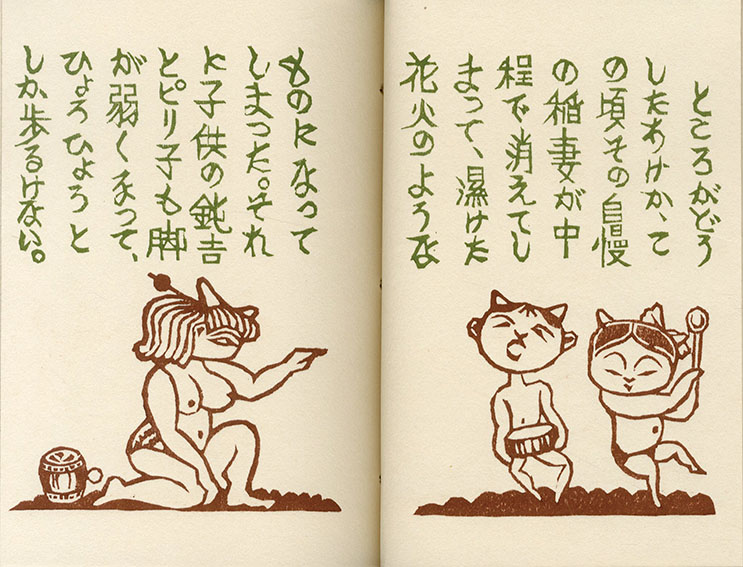 ところがどう
したわけか、て
の頃その自慢
の稲妻が中
程で消えてし
まって、濕けた
花火のような
ものになって
しまった。それ
に子供の鈍吉
とピリ子も脚
が弱くなって、
ひょろひょろと
しか歩るけない。